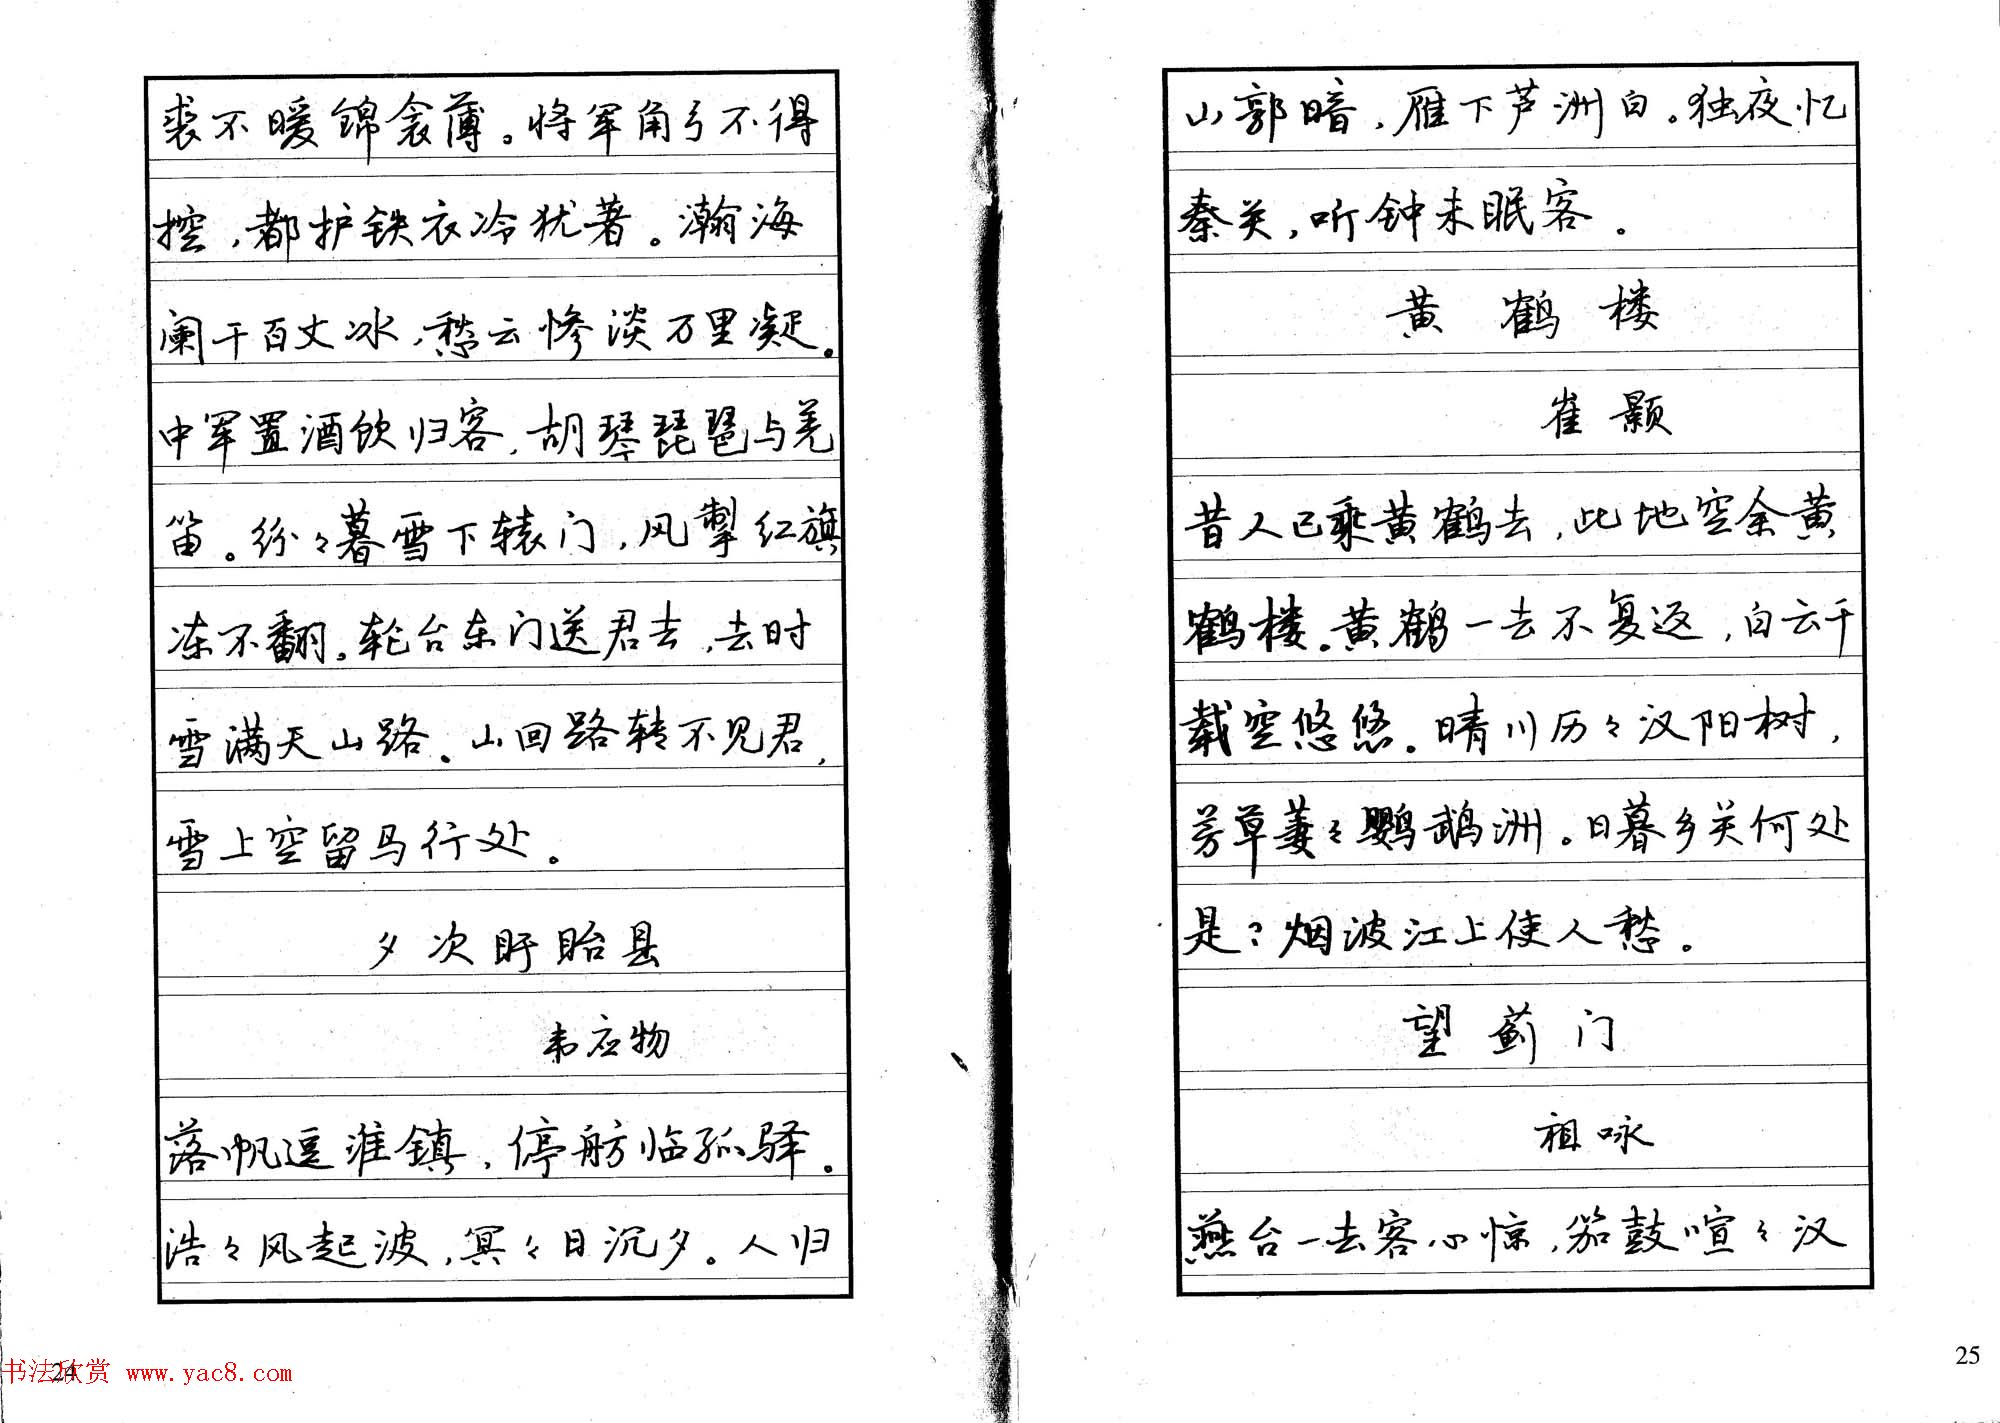 裘不暖锦衾薄。将军角弓不得
控,都护铁衣冷犹著。瀚海
阑干百丈冰,愁云惨淡万里凝。
中军置酒饮归客,胡琴琵琶与羌
笛。纷々暮雪下辕门,风掣红旗
冻不翻。轮台东门送君去,去时
雪满天山路。山回路转不见君,
雪上空留马行处。
夕次盱眙县
韦应物
落帆逗淮鎮,停舫临孤驿。
浩々风起波,冥々日沉夕。人归
24
书法欣赏 www.yac8.com
山郭暗,雁下芦洲白。独夜忆
秦关,听钟未眠客。
黄鹤楼
崔颢
昔人已乘黄鹤去,此地空余黄
鹤楼。黄鹤一去不复返,白云千
载空悠悠。晴川历々汉阳树,
芳草萋々鹦鹉洲。日暮乡关何处
是?烟波江上使人愁。
望蓟门
祖咏
燕台一去客心惊,笳鼓喧々汉
25